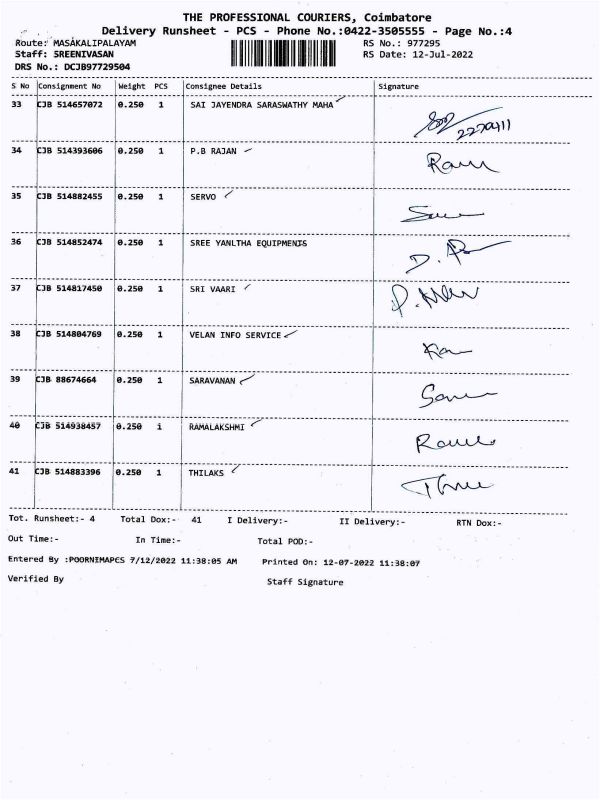 THE PROFESSIONAL COURIERS, Coimbatore
Delivery Runsheet - PCS - Phone No.:0422-3505555 - Page No.:4
Route: MASAKALIPALAYAM RS No.: 977295
Staff: SREENIVASAN RS Date: 12-Jul-2022
DRS No.: DCJB97729504
S No Consignment No Weight PCS Consignee Details Signature
33 CJB 514657072 0.250 1 SAI JAYENDRA SARASWATHY MAHA
34 CJB 514393606 0.250 1 P.B RAJAN
35 CJB 514882455 0.250 1 SERVO
36 CJB 514852474 0.250 1 SREE YANLTHA EQUIPMENTS
37 CJB 514817450 0.250 1 SRI VAARI
38 CJB 514804769 0.250 1 VELAN INFO SERVICE
39 CJB 88674664 0.250 1 SARAVANAN
40 CJB 514938457 0.250 1 RAMALAKSHMI
41 CJB 514883396 0.250 1 THILAKS
Tot. Runsheet:- 4 Total Dox:- 41 I Delivery:- II Delivery:- RTN Dox:-
Out Time:- In Time:- Total POD:-
Entered By :POORNIMAPCS 7/12/2022 11:38:05 AM Printed On: 12-07-2022 11:38:07
Verified By Staff Signature